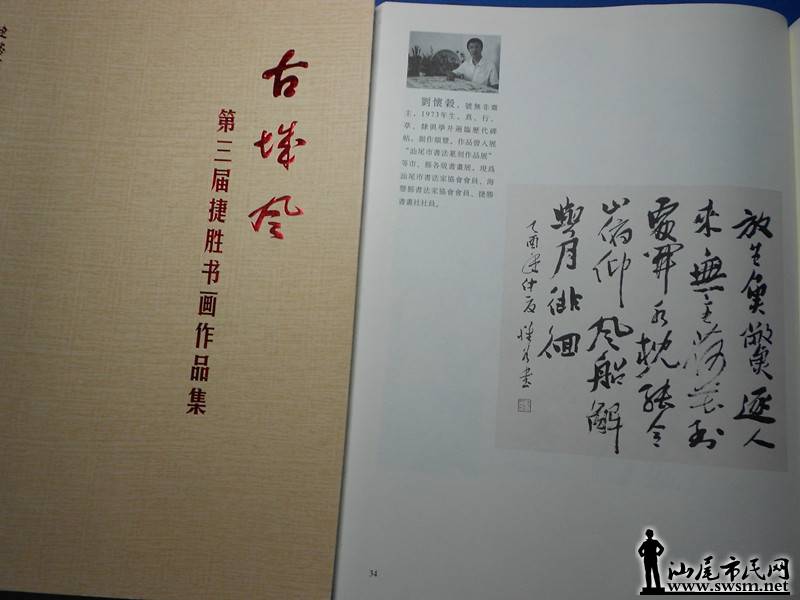 古城风
第三届捷胜书画作品集
劉懷穀，號無非齋
主，1973年生。真、行、
草、隸俱學并遍臨歷代碑
帖，創作頗豐。作品曾入展
“汕尾市書法篆刻作品展”
等市、縣各級書畫展。現爲
汕尾市書法家協會會員、海
豐縣書法家協會會員、捷勝
書畫社社員。
放生魚鱉逐人
來無主荷花到
處開水枕能令
山俯仰風船解
與月徘徊
乙酉仲夏書
34
汕尾市民网
www.swsm.net